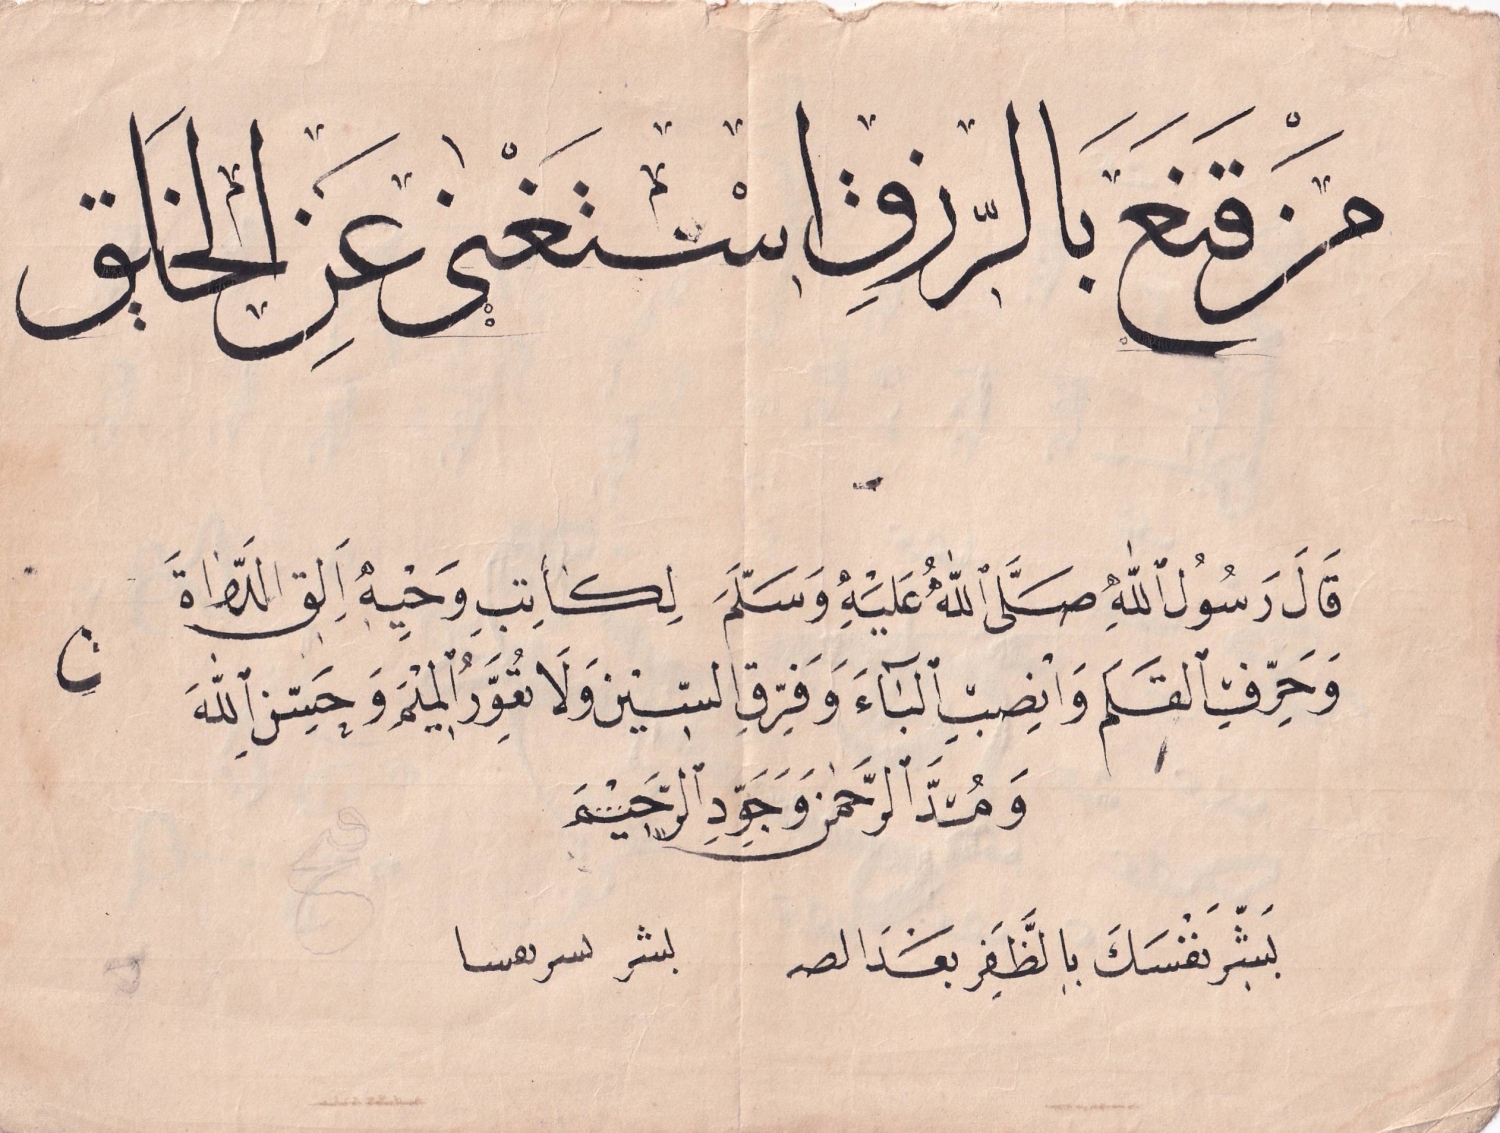 مَنْ قَنَعَ بَالرِّزقِ اسْتَغْنٰى عَنِ الخَلَق
قَالَ رَسُولُ اللّٰهِ صَلَّى اللّٰهُ عَلَيْهِ وَسَلَّمَ لِكَاتِبِ وَحْيِهِ اَلِقِ الدَّوَاةَ
وَحَرِّفِ القَلَمَ وَانْصِبِ الْبَآءَ وَفَرِّقِ السِّينَ وَلَا تُعَوِّرُ الْمِيْمَ وَحَسِّنِ اللّٰهَ
وَمُدَّ الرَّحْمٰنَ وَجَوِّدِ الرَّحِيْمَ
بَشِّرْ نَفْسَكَ بِالظَّفَرِ بَعْدَ الصـ بشر
ن